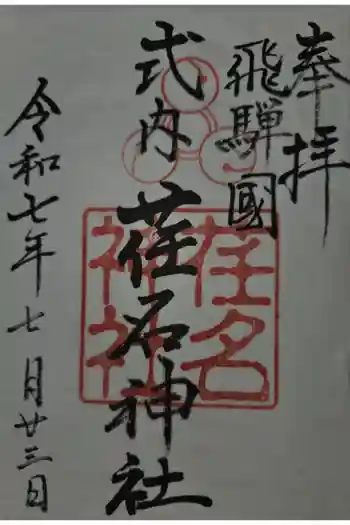 奉拝
飛騨國
式内 荏名神社
令和七年七月廿三日
荏名
神社